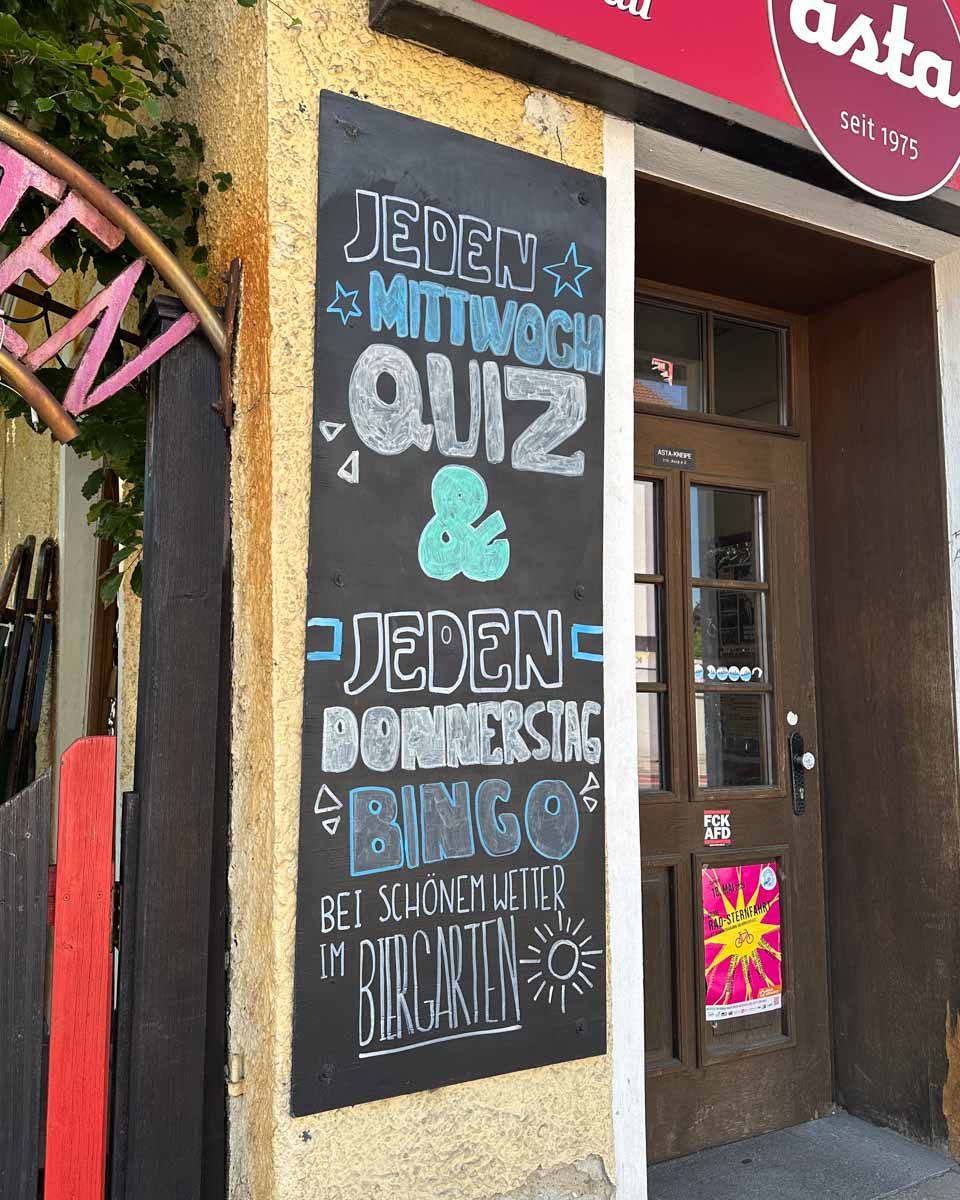 asta
seit 1975
JEDEN
MITTWOCH
QUIZ
&
JEDEN
DONNERSTAG
BINGO
BEI SCHÖNEM WETTER
IM BIERGARTEN
ASTA-KNEIPE
FCK
AFD
18. MAI
RAD-STERNFAHRT